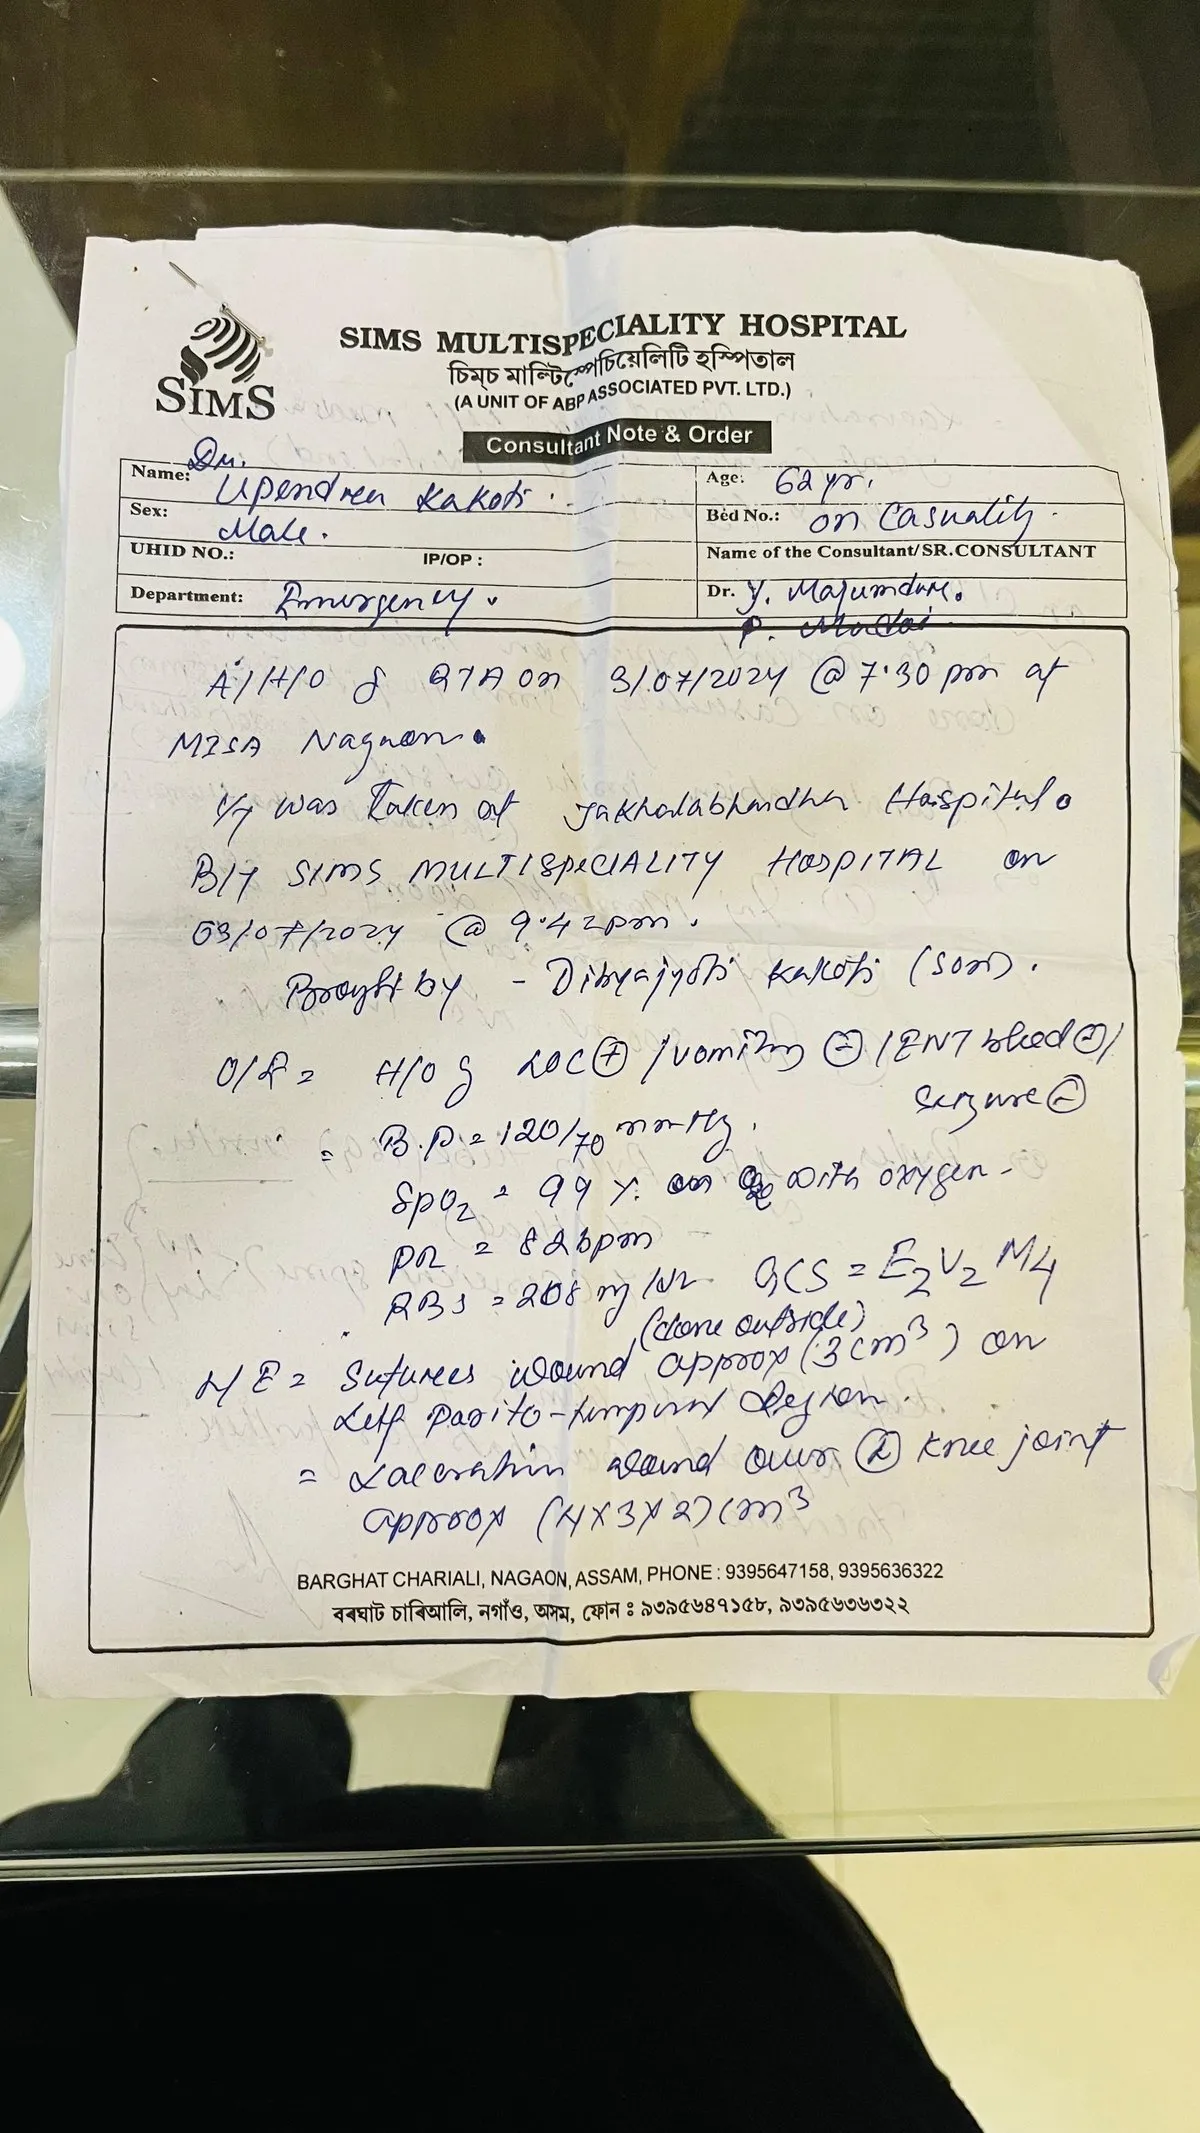 SIMS
SIMS MULTISPECIALITY HOSPITAL
চিমচ মাল্টিস্পেচিয়েলিটি হস্পিতাল
(A UNIT OF ABP ASSOCIATED PVT. LTD.)
Consultant Note & Order
Name: Dr. Upendra Kakoti.
Age: 62 yr.
Sex: Male.
Bed No.: on Casuality.
UHID NO.: IP/OP :
Name of the Consultant/SR.CONSULTANT
Department: Emergency.
Dr. Y. Majumdar.
P.
A/H/O of RTA on 3/07/2024 @ 7.30 pm at
MISA Nagaon.
was taken at Jakhalabhandha Hospital.
B/T SIMS MULTISPECIALITY HOSPITAL on
03/07/2024 @ 9.42pm.
Brought by - Dibyajyoti Kakoti (son).
O/E = H/O of LOC (+) /vomiting (-) /ENT bleed (-)/
seizure (-)
= B.P = 120/70 mmHg.
SpO2 = 99 %. on with oxygen -
PR = 82 bpm
RBS = 208 mg/dl. GCS = E2V2M4
(done outside)
L/E = Sutures wound approx (3cm3) on
Left Parito-temporal Region.
= Laceration wound over (L) knee joint
approx (4x3x2) cm3
BARGHAT CHARIALI, NAGAON, ASSAM, PHONE : 9395647158, 9395636322
বৰঘাট চাৰিআলি, নগাঁও, অসম, ফোন : ৯৩৯৫৬৪৭১৫৮, ৯৩৯৫৬৩৬৩২২